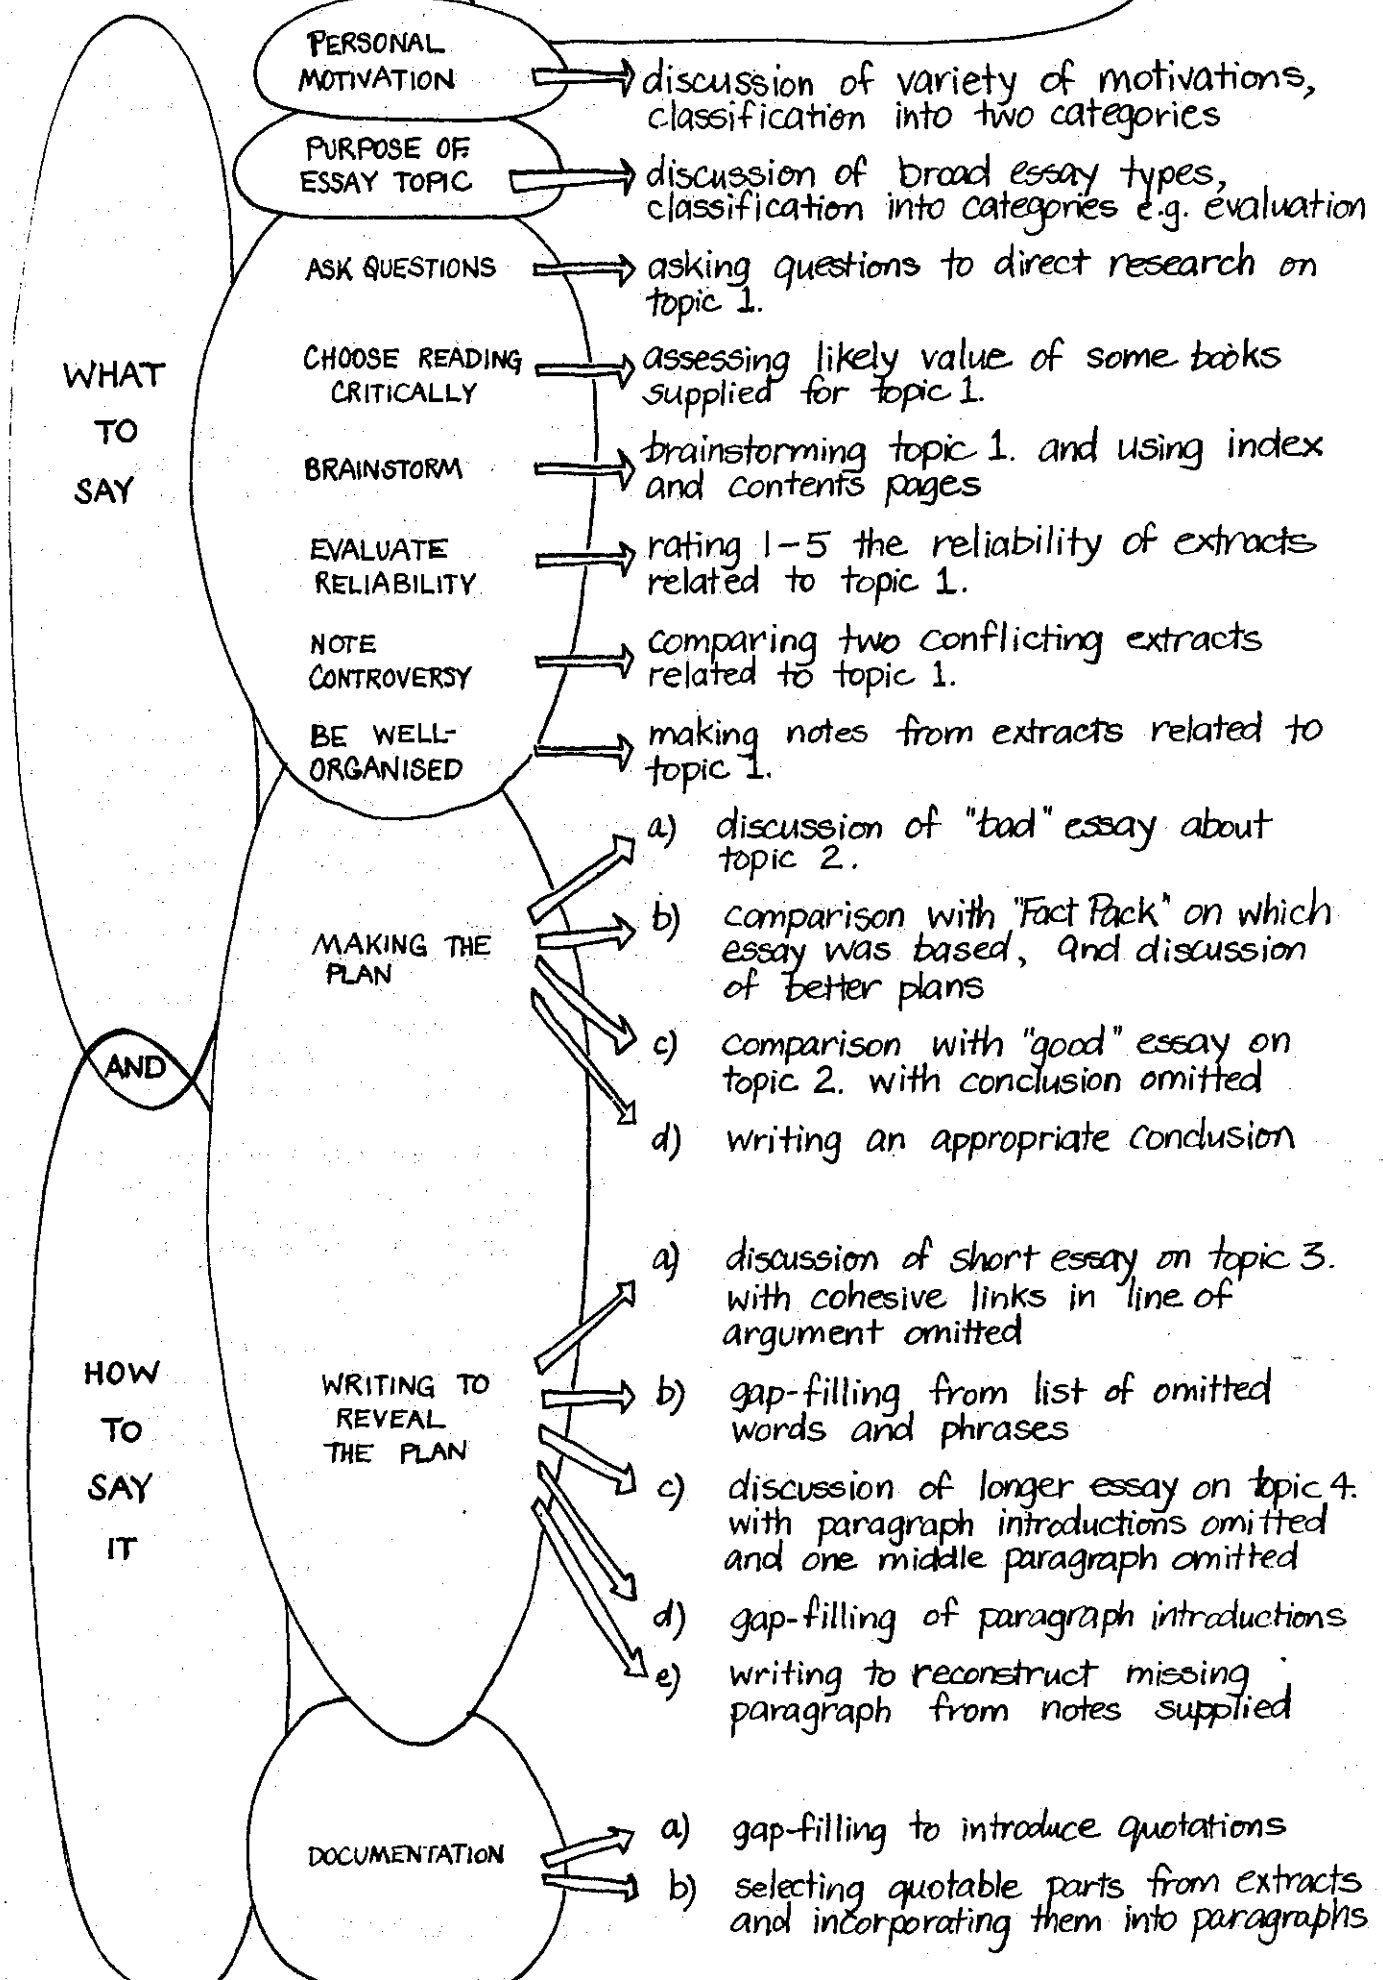 PERSONAL
MOTIVATION
discussion of variety of motivations,
classification into two categories
PURPOSE OF
ESSAY TOPIC
discussion of broad essay types,
classification into categories e.g. evaluation
WHAT
TO
SAY
ASK QUESTIONS
asking questions to direct research on
topic 1.
CHOOSE READING
CRITICALLY
assessing likely value of some books
supplied for topic 1.
BRAINSTORM
brainstorming topic 1. and using index
and contents pages
EVALUATE
RELIABILITY
rating 1-5 the reliability of extracts
related to topic 1.
NOTE
CONTROVERSY
comparing two conflicting extracts
related to topic 1.
BE WELL-
ORGANISED
making notes from extracts related to
topic 1.
AND
MAKING THE
PLAN
a) discussion of "bad" essay about
topic 2.
b) comparison with "Fact Pack" on which
essay was based, and discussion
of better plans
c) comparison with "good" essay on
topic 2. with conclusion omitted
d) writing an appropriate conclusion
HOW
TO
SAY
IT
WRITING TO
REVEAL
THE PLAN
a) discussion of short essay on topic 3.
with cohesive links in line of
argument omitted
b) gap-filling from list of omitted
words and phrases
c) discussion of longer essay on topic 4.
with paragraph introductions omitted
and one middle paragraph omitted
d) gap-filling of paragraph introductions
e) writing to reconstruct missing
paragraph from notes supplied
DOCUMENTATION
a) gap-filling to introduce quotations
b) selecting quotable parts from extracts
and incorporating them into paragraphs